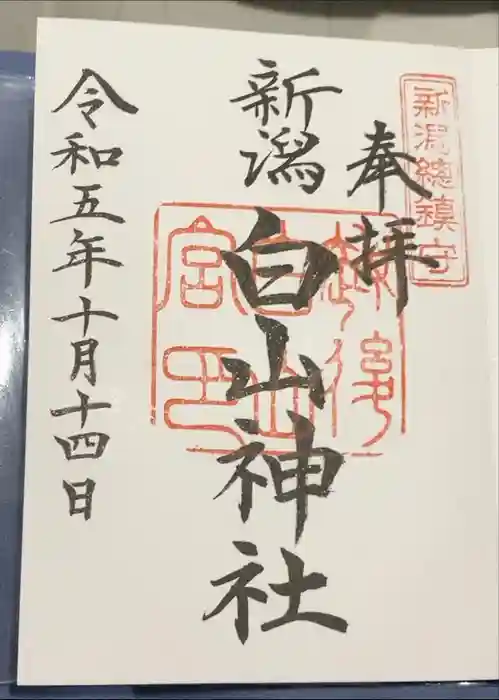 新潟總鎮守
奉拝
新潟
白山神社
令和五年十月十四日